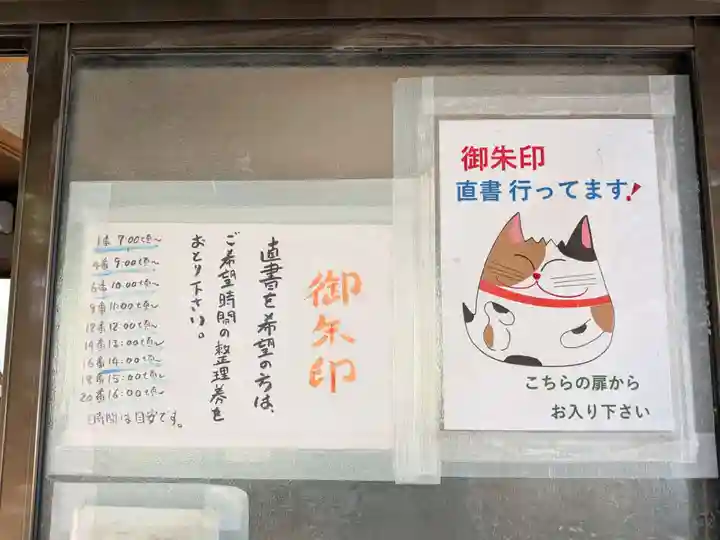 御朱印
直書を希望の方は、
ご希望時間の整理券を
おとり下さい。
1番 7:00頃〜
4番 9:00頃〜
6番 10:00頃〜
9番 11:00頃〜
12番 12:00頃〜
14番 13:00頃〜
16番 14:00頃〜
18番 15:00頃〜
20番 16:00頃〜
時間は目安です。
御朱印
直書 行ってます!
こちらの扉から
お入り下さい